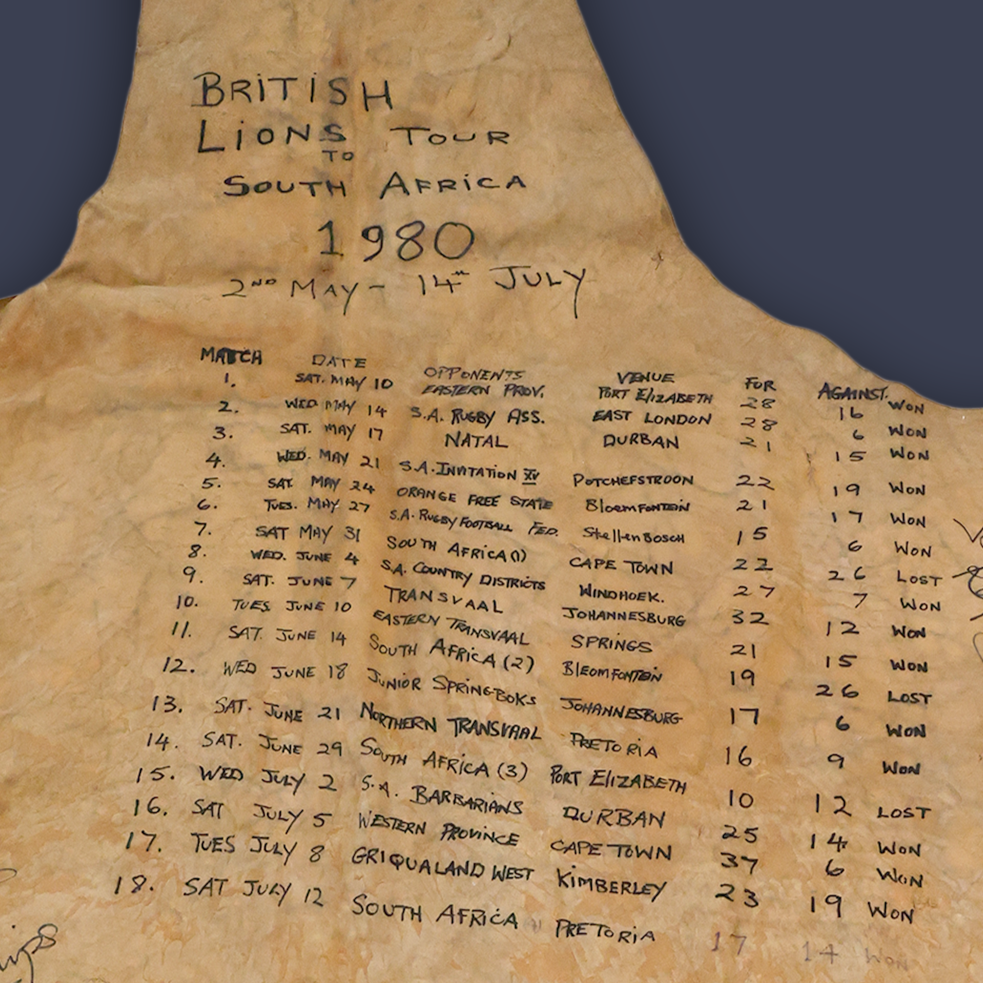 BRITISH
LIONS TOUR
TO
SOUTH AFRICA
1980
2ND MAY - 14TH JULY
MATCH DATE OPPONENTS VENUE FOR AGAINST.
1. SAT. MAY 10 EASTERN PROV. PORT ELIZABETH 28 16 WON
2. WED MAY 14 S.A. RUGBY ASS. EAST LONDON 28 6 WON
3. SAT. MAY 17 NATAL DURBAN 21 15 WON
4. WED. MAY 21 S.A. INVITATION XV POTCHEFSTROON 22 19 WON
5. SAT. MAY 24 ORANGE FREE STATE BLOEMFONTEIN 21 17 WON
6. TUES. MAY 27 S.A. RUGBY FOOTBALL FED. STELLENBOSCH 15 6 WON
7. SAT MAY 31 SOUTH AFRICA (1) CAPE TOWN 22 26 LOST
8. WED. JUNE 4 S.A. COUNTRY DISTRICTS WINDHOEK. 27 7 WON
9. SAT. JUNE 7 TRANSVAAL JOHANNESBURG 32 12 WON
10. TUES JUNE 10 EASTERN TRANSVAAL SPRINGS 21 15 WON
11. SAT. JUNE 14 SOUTH AFRICA (2) BLEOMFONTEIN 19 26 LOST
12. WED JUNE 18 JUNIOR SPRINGBOKS JOHANNESBURG 17 6 WON
13. SAT. JUNE 21 NORTHERN TRANSVAAL PRETORIA 16 9 WON
14. SAT. JUNE 29 SOUTH AFRICA (3) PORT ELIZABETH 10 12 LOST
15. WED JULY 2 S.A. BARBARIANS DURBAN 25 14 WON
16. SAT JULY 5 WESTERN PROVINCE CAPE TOWN 37 6 WON
17. TUES JULY 8 GRIQUALAND WEST KIMBERLEY 23 19 WON
18. SAT JULY 12 SOUTH AFRICA PRETORIA 17 14 WON